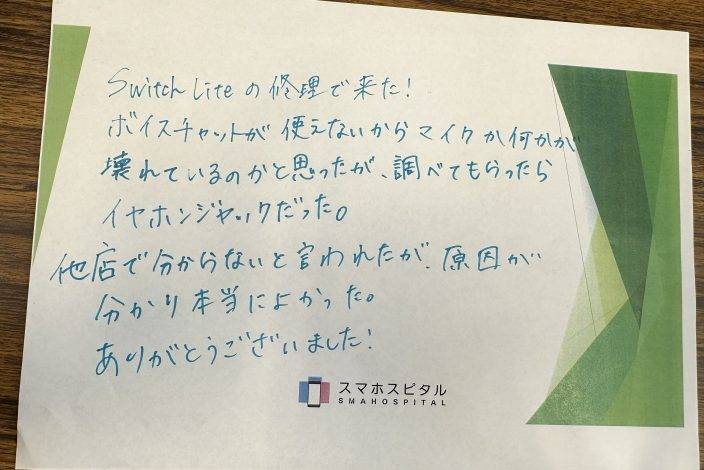 Switch Liteの修理で来た!
ボイスチャットが使えないからマイクか何かが
壊れているのかと思ったが、調べてもらったら
イヤホンジャックだった。
他店で分からないと言われたが、原因が
分かり本当によかった。
ありがとうございました!
スマホスピタル
SMAHOSPITAL